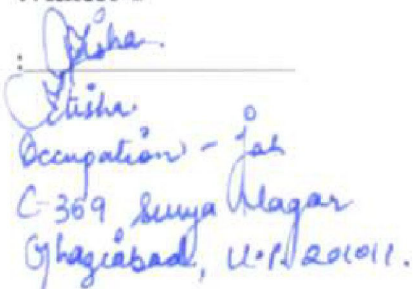 :
Itisha
Occupation - Job
C-369 Surya Nagar
Ghaziabad, U.P. 201011.